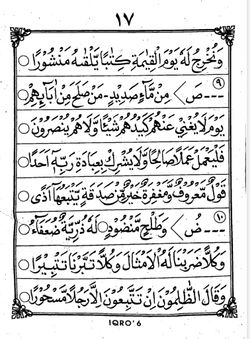 ١٧
وَنُخْرِجُ لَهٗ يَوْمَ الْقِيٰمَةِ كِتٰبًا يَّلْقٰىهُ مَنْشُوْرًا ○
٩
--- صَ ﴿ مِنْ مَّآءٍ صَدِيْدٍ - مَنْ صَلَحَ مِنْ اٰبَآئِهِمْ
يَوْمَ لَا يُغْنِيْ عَنْهُمْ كَيْدُهُمْ شَيْئًا وَّلَا هُمْ يُنْصَرُوْنَ ○
فَلْيَعْمَلْ عَمَلًا صَالِحًا وَّلَا يُشْرِكْ بِعِبَادَةِ رَبِّهٖٓ اَحَدًا ○
قَوْلٌ مَّعْرُوْفٌ وَّمَغْفِرَةٌ خَيْرٌ مِّنْ صَدَقَةٍ يَّتْبَعُهَآ اَذًى ○
١٠
--- ضُ ﴿ وَطَلْحٍ مَّنْضُوْدٍ ○ لَهٗ ذُرِّيَّةٌ ضُعَفَآءُ
وَكُلًّا ضَرَبْنَا لَهُ الْاَمْثَالَ وَكُلًّا تَبَّرْنَا تَتْبِيْرًا ○
وَقَالَ الظّٰلِمُوْنَ اِنْ تَتَّبِعُوْنَ اِلَّا رَجُلًا مَّسْحُوْرًا ○
IQRO' 6